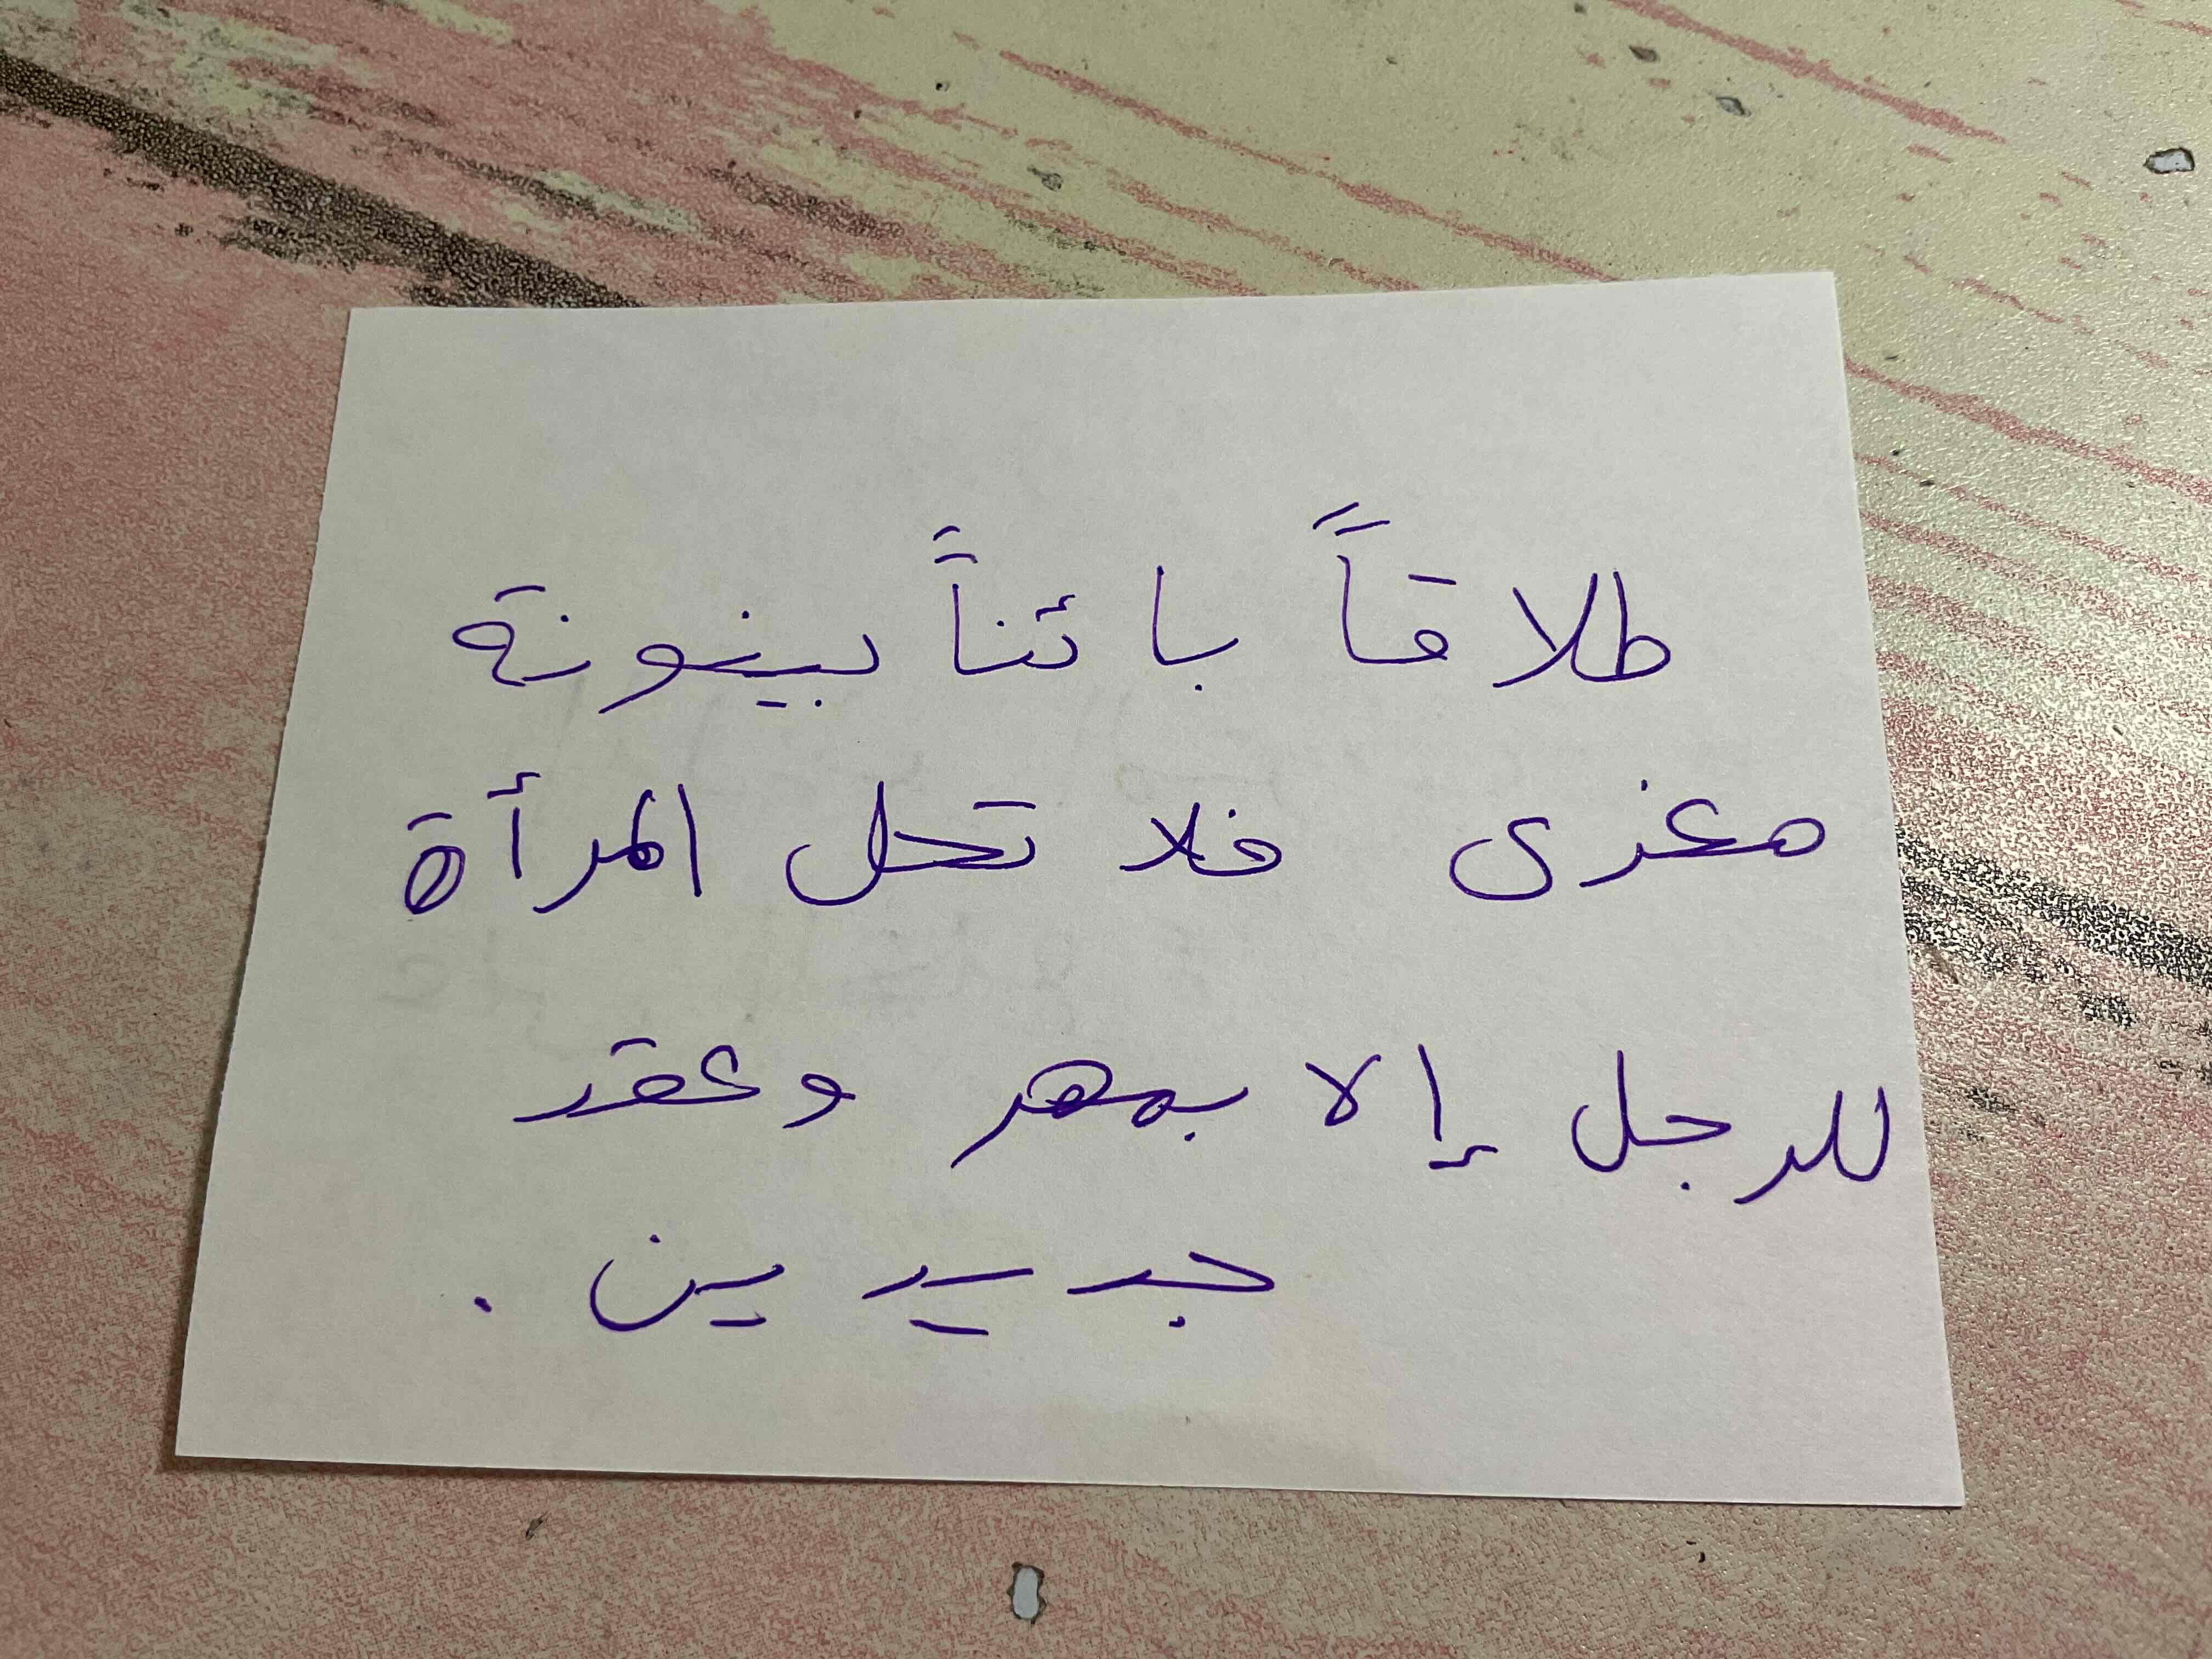 طلاقاً بائناً بينونة
صغرى فلا تحل المرأة
للرجل إلا بمهر وعقد
جديدين .